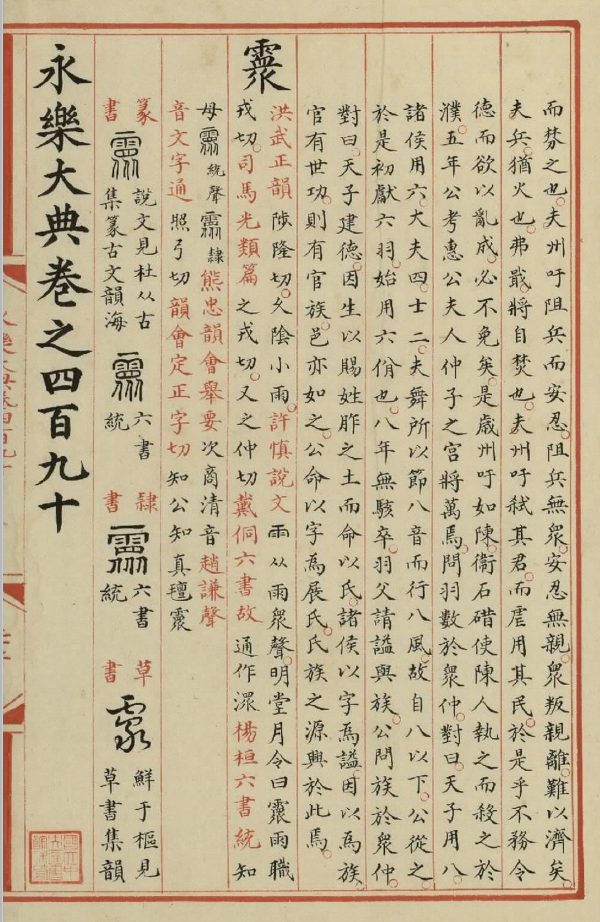 而棼之也夫州吁阻兵而安忍阻兵無衆安忍無親衆叛親離難以濟矣
夫兵猶火也弗戢將自焚也夫州吁弒其君而虐用其民於是乎不務令
德而欲以亂成必不免矣是歲州吁如陳衞石碏使陳人執之而殺之於
濮五年公考惠公夫人仲子之宫將萬焉問羽數於衆仲對曰天子用八
諸侯用六大夫四士二夫舞所以節八音而行八風故自八以下公從之
於是初獻六羽始用六佾也八年無駭卒羽父請謚與族公問族於衆仲
對曰天子建德因生以賜姓胙之土而命以氏諸侯以字為謚因以為族
官有世功則有官族邑亦如之公命以字為展氏氏族之源興於此焉
霥
洪武正韻陟隆切久陰小雨許慎說文雨从雨衆聲明堂月令曰霥雨職
戎切司馬光類篇之戎切又之仲切戴侗六書故通作漴楊桓六書統知
母霥統聲霥隸熊忠韻會舉要次商清音趙謙聲
音文字通照弓切韻會定正字切知公知真氊霥
篆書 霥 說文見杜从古
集篆古文韻海
霥 六書統
隸書 霥 六書統
草書 霥 鮮于樞見
草書集韻
永樂大典卷之四百九十
永樂大典卷四百九十